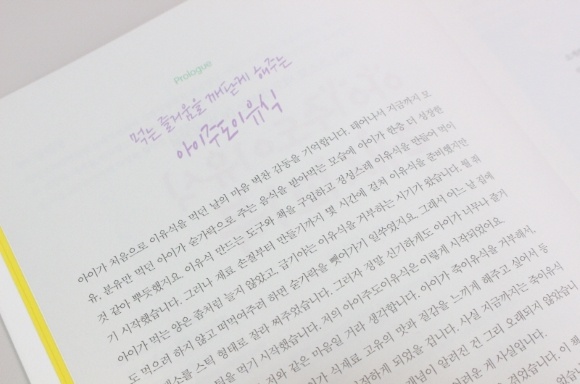 Prologue
먹는 즐거움을 깨닫게 해주는
아이주도이유식
아이가 처음으로 이유식을 먹던 날의 마음 벅찬 감동을 기억합니다. 태어나서 지금까지 모
유, 분유만 먹던 아이가 숟가락으로 주는 음식을 받아먹는 모습에 아이가 한층 더 성장한
것 같아 뿌듯했지요. 이유식 만드는 도구와 책을 구입하고 정성스레 이유식을 만들어 먹이
기 시작했습니다. 그러나 재료 손질부터 만들기까지 몇 시간에 걸쳐 이유식을 준비했지만
아이가 먹는 양은 좀처럼 늘지 않았고, 급기야는 이유식을 거부하는 시기가 왔습니다. 뭘 줘
도 먹으려 하지 않고 떠먹여주려 하면 숟가락을 뺏어가기 일쑤였지요. 그래서 어느 날 집에
채소를 스틱 형태로 잘라 쪄주었습니다. 그러자 정말 신기하게도 아이가 너무나 즐거
틱을 먹기 시작했습니다. 것의 아이주도이유식은 이렇게 시작되었어요
저와 같은 마음일 거라 생각합니다. 아이가 죽이유식을 거부해서,
이가 식재료 고유의 맛과 질감을 느끼게 해주고 싶어서 등
시작하게 되었을 겁니다. 사실 지금까지는 죽이유식
개념이 알려진 건 그리 오래되지 않았습니
러운 게 사실입니다.